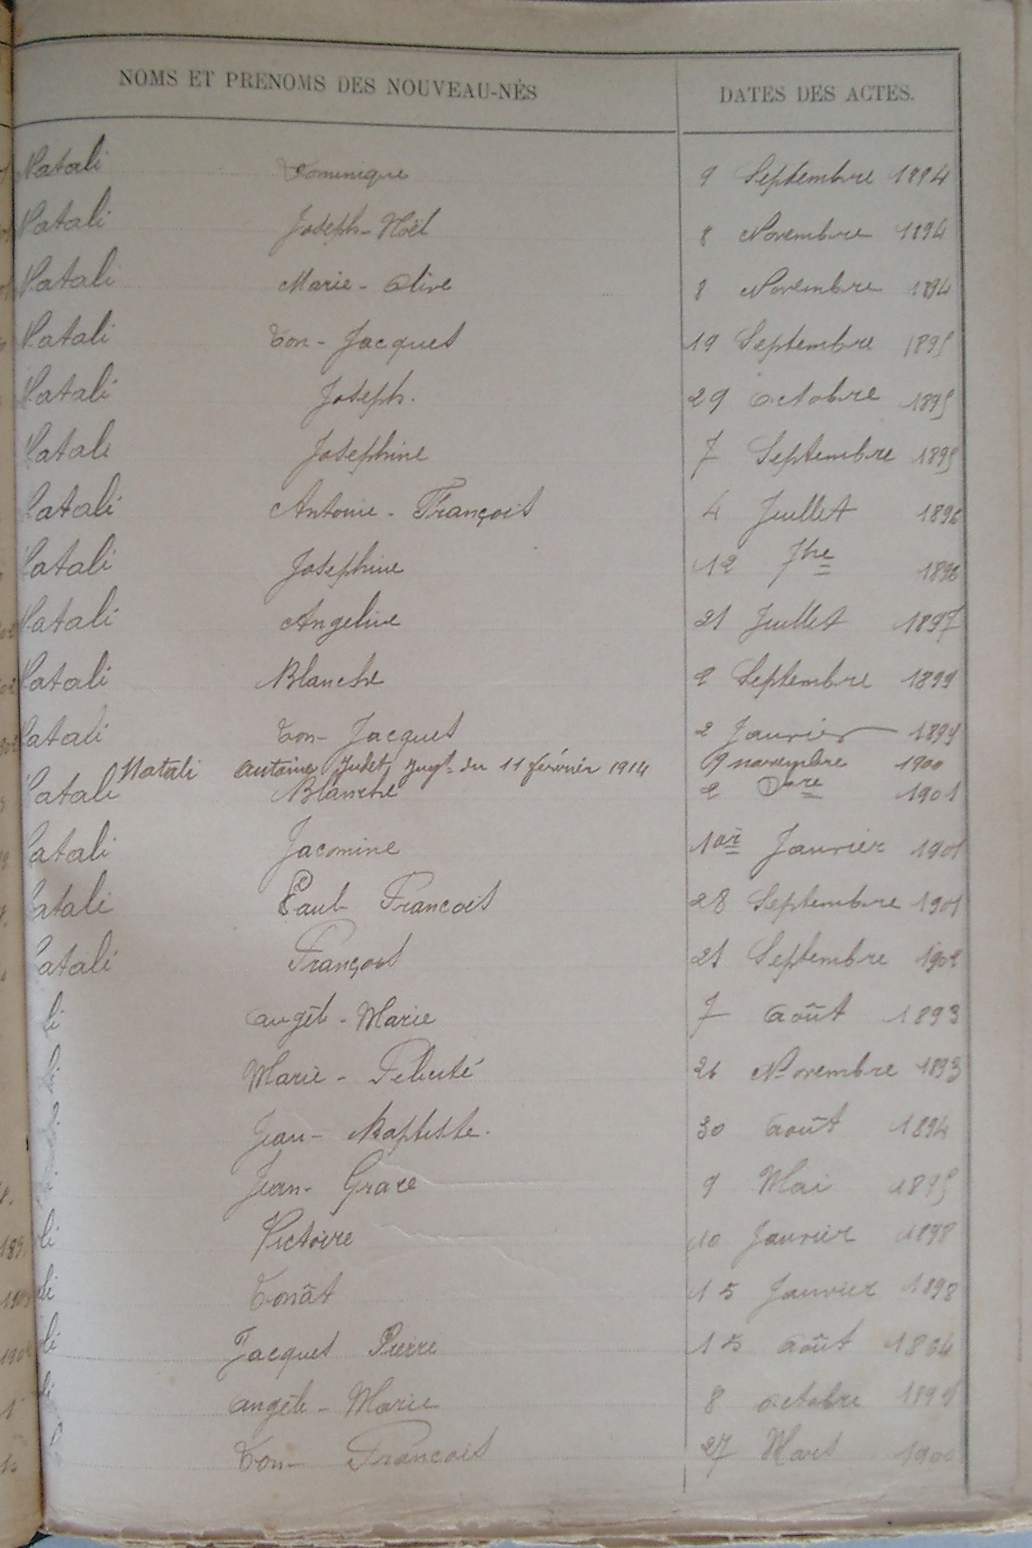 NOMS ET PRENOMS DES NOUVEAU-NÉS DATES DES ACTES.
Natali Dominique 9 Septembre 1894
Natali Joseph-Noël 8 Novembre 1894
Natali Marie-Olive 8 Novembre 1894
Natali Don-Jacques 19 Septembre 1895
Natali Joseph. 29 Octobre 1895
Natali Josephine 7 Septembre 1895
Natali Antoine-François 4 Juillet 1896
Natali Josephine 12 7bre 1896
Natali Angeline 21 Juillet 1897
Natali Blanche 2 Septembre 1899
Natali Don-Jacques 2 Janvier 1899
Natali Antoine Judet, Jugt du 11 février 1914 9 novembre 1900
Natali Blanche 2 1901
Natali Jacomine 1er Janvier 1901
Natali Paul François 28 Septembre 1901
Natali François 21 Septembre 1902
li Angèle-Marie 7 Août 1893
Marie-Félicité 26 Novembre 1893
Jean-Baptiste. 30 Août 1894
Jean-Grace 9 Mai 1895
li Victoire 10 Janvier 1898
li Donat 15 Janvier 1898
li Jacques Pierre 15 Août
Angèle-Marie 8 Octobre
Don-François 27 Mars 1900